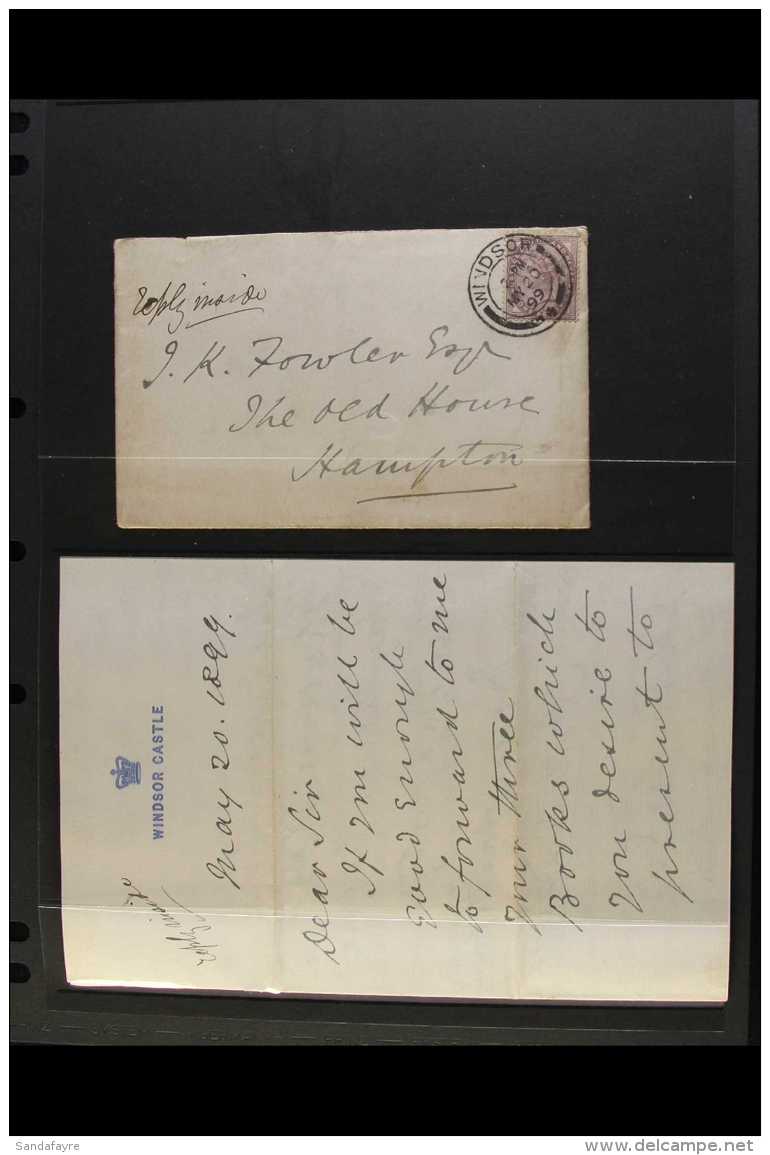 reply inside
J. K. Fowler Esqr
The Old House
Hampton
WINDSOR
PM
MY 20
99
reply inside
WINDSOR CASTLE
May 20. 1899.
Dear Sir
If you will be
good enough
to forward to me
your three
Books which
you desire to
present to
Sandafayre
delcampe.net